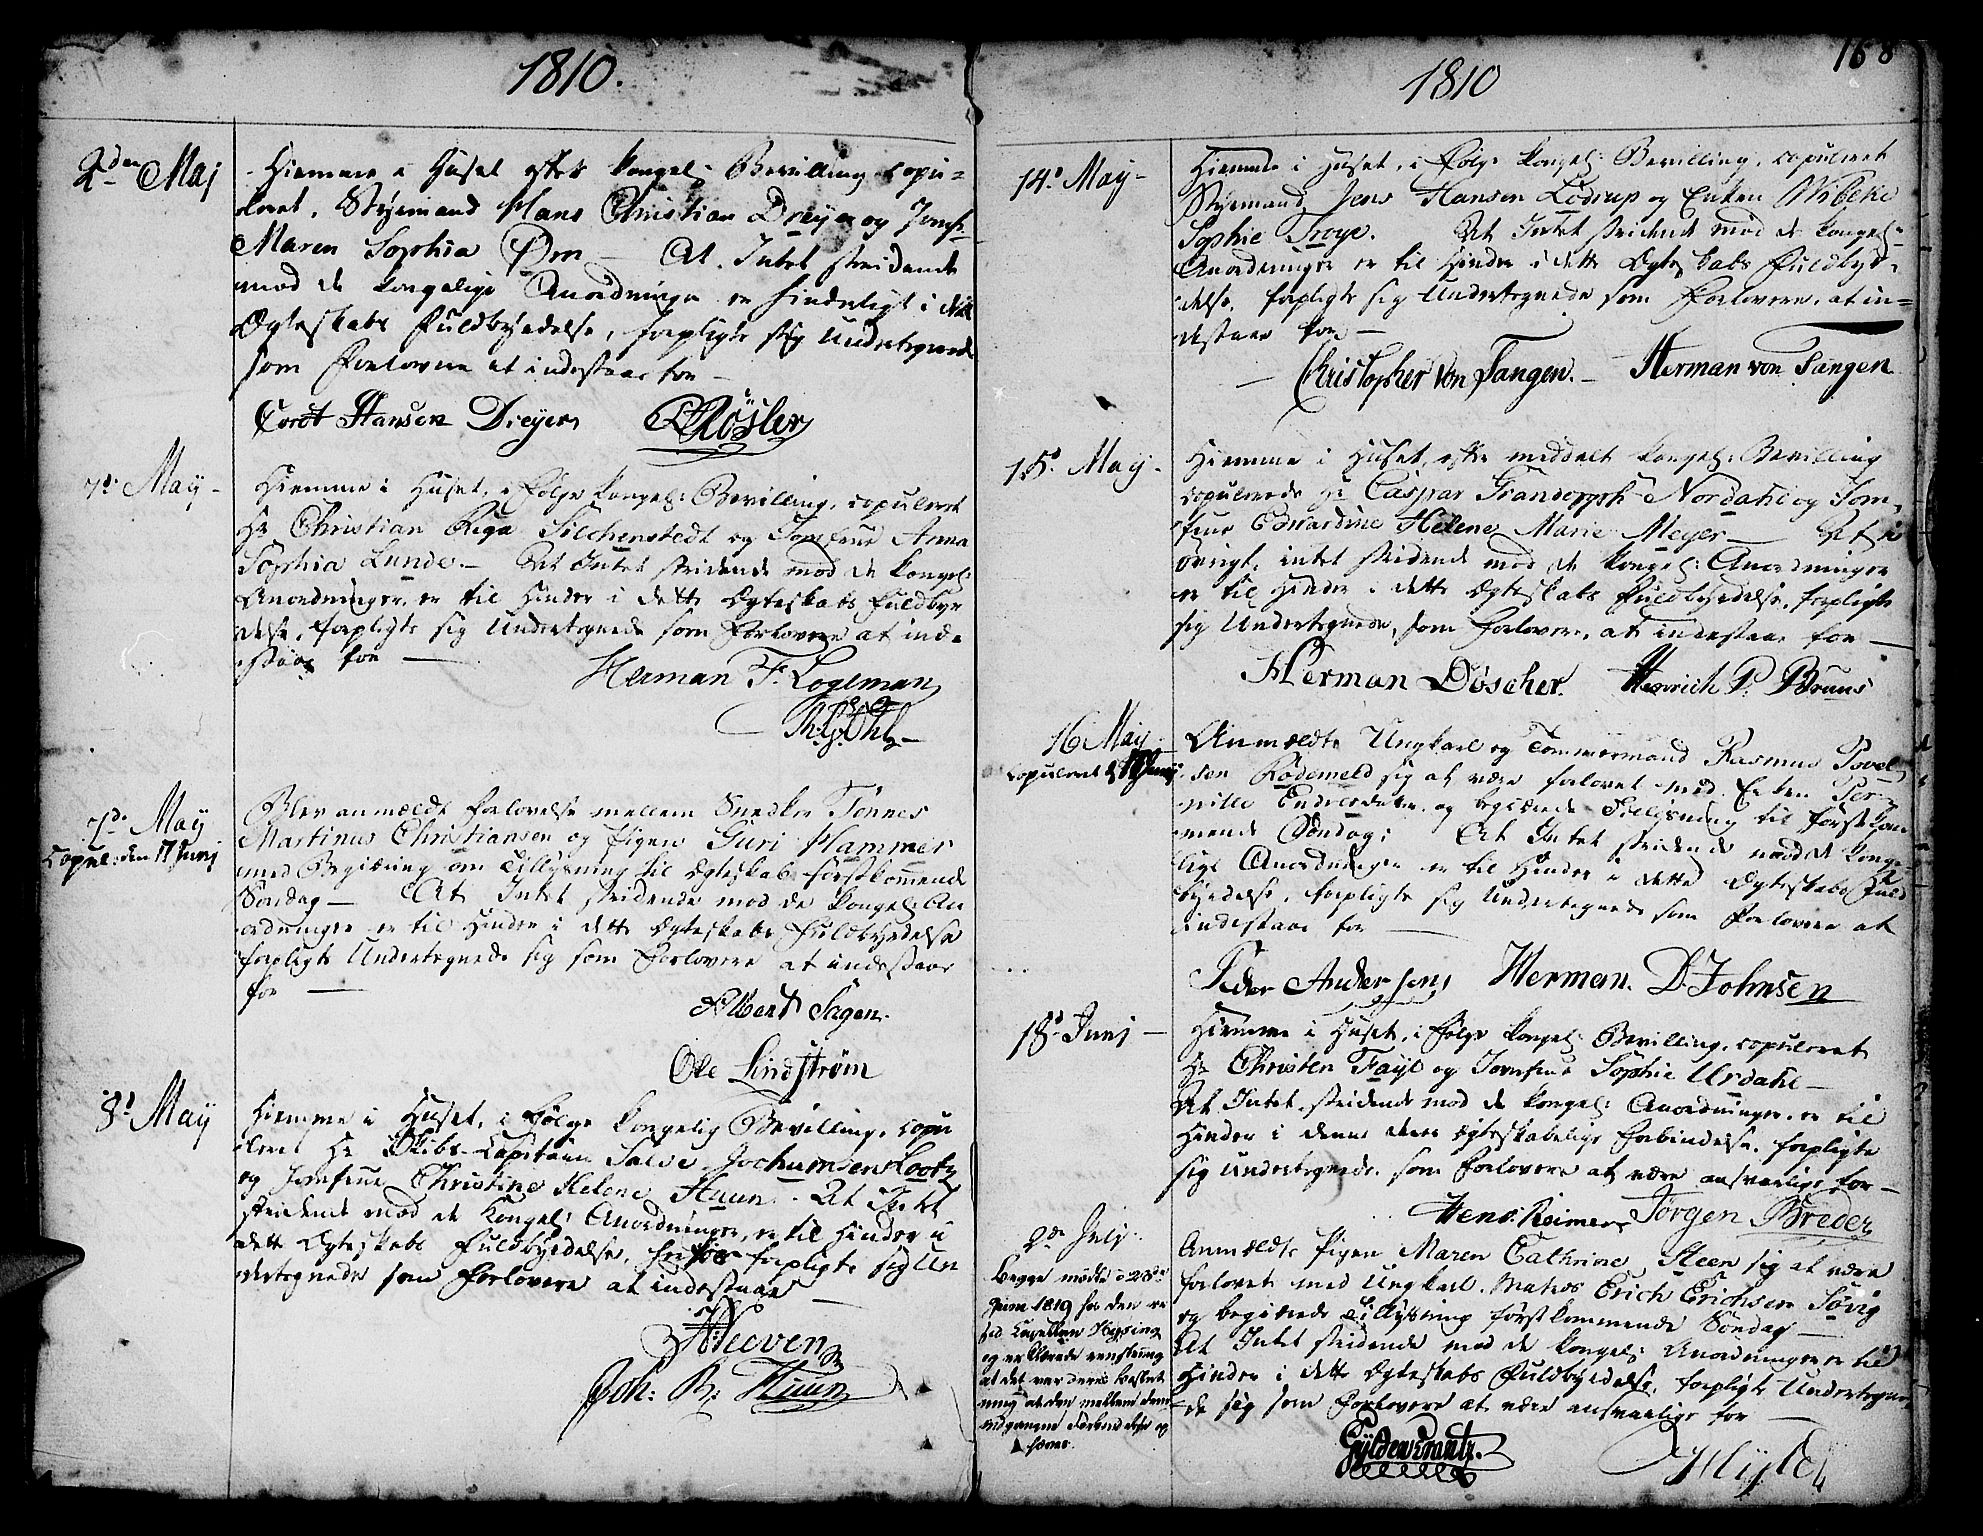 1810.
2den Maj
Hiemme i Huset efter kongel: Bevilling copu=
leret, Styrmand Hans Christian Dreyer og Jomfr:
Maren Sophia Örn — At Intet stridende
mod de kongelige Anordninger er hinderligt i dette
Ægteskabs Fuldbyrdelse, forpligte sig Undertegnede
som Forlovere at indestaae for —
Cordt Hansen Dreyer Rösler
7d: May -
Hiemme i Huset, i følge kongel: Bevilling, copuleret
Hr Christian Riga Silchenstedt og Jomfrue Anna
Sophia Lunde. — At Intet stridende mod de kongel:
Anordninger, er til Hinder i dette Ægteskabs Fuldbyr
delse, forpligte sig Undertegnede som Forlovere at inde
staae for —
Herman F. Logeman
7d: May
Copul: den 17 Junj
Blev anmældt Forlovelse mellem Snedker Tönnes
Martinus Christiansen og Pigen Guri Hammer
med Begiæring om Tillysning til Ægteskab förstkom̅ende
Söndag — At Intet stridende mod de kongel: An
ordninger er til Hinder i dette Ægteskabs Fuldbyrdelse
forpligte Undertegnede sig som Forlovere at indestaae
for —
Albert Sagen.
Ole Lindström
8d May
Hiemme i Huset, i Følge kongelig Bevilling, copu
leret Hr Skibs-Capitain Salve Jochumsen Kootz
og Jomfrue Christine Helene Huun. At Intet
stridende mod de Kongel: Anordninger, er til Hinder i
dette Ægteskabs Fuldbyrdelse, forpligte sig Un
dertegnede som Forlovere at indestaae —
Joh: B: Huun
168
1810
14d May -
Hiemme i Huset, i Følge kongel: Bevilling, copuleret
Styrmand Jens Hansen Lödrup og Enken Wibeke
Sophie Troye. At Intet stridende mod de kongel:
Anordninger er til Hinder i dette Ægteskabs Fuldbyr=
delse, forpligte sig Undertegnede som Forlovere, at in=
destaae for —
Christopher von Tangen. — Herman von Tangen
15d May -
Hiemme i Huset, efter meddelt kongel: Bevilling
copulerede Hr Caspar Nordahl og Jom
frue Edvardine Helene Marie Meyer — At i
övrigt, intet stridende mod de kongel: Anordninger
er til Hinder i dette Ægteskabs Fuldbyrdelse, forpligte
sig Undertegnede, som Forlovere, at indestaae for —
Herman Döscher. Henrich P. Bruns
16 May
Copuleret d 17 Junij
Anmældte Ungkarl og Tömmermand Rasmus Povel
sen Rödemeld sig at være forlovet med Enken Per
nille Endresdatter og begiærede Tillysning til förstkom
mende Söndag: At Intet stridende mod de konge
lige Anordninger er til Hinder i dette Ægteskabs Fuld
byrdelse, forpligte sig Undertegnede som Forlovere at
indestaae for —
Peder Andersen Herman. D. Johnsen
18d Junj —
Hiemme i Huset, i Følge kongel: Bevilling, copuleret
Hr Christen Faye og Jomfrue Sophie Urdahl —
At Intet stridende mod de kongel: Anordninger, er til
Hinder i denne deres Ægteskabelige Forbindelse, forpligte
sig Undertegnede, som Forlovere at være ansvarlige for —
Hens: Reimers Jörgen Breder
2de July.
Anmældte Pigen Maren Cathrine Steen sig at være
forlovet med Ungkarl Mathis Erich Erichsen Sövig
og begiærede Tillysning förstkommende Söndag —
At Intet stridende mod de kongel: Anordninger er til
Hinder i dette Ægteskabs Fuldbyrdelse, forpligte Undertegne
de sig som Forlovere at være ansvarlige for —
Begge mödte d 28de
Juni 1819 for den re
sid Capellan Hysing
og erklærede eenstemmig
at det var deres beslut
ning at den mellem dem
indgangne Forbindelse op
hæves.
Gyldenkrantz.